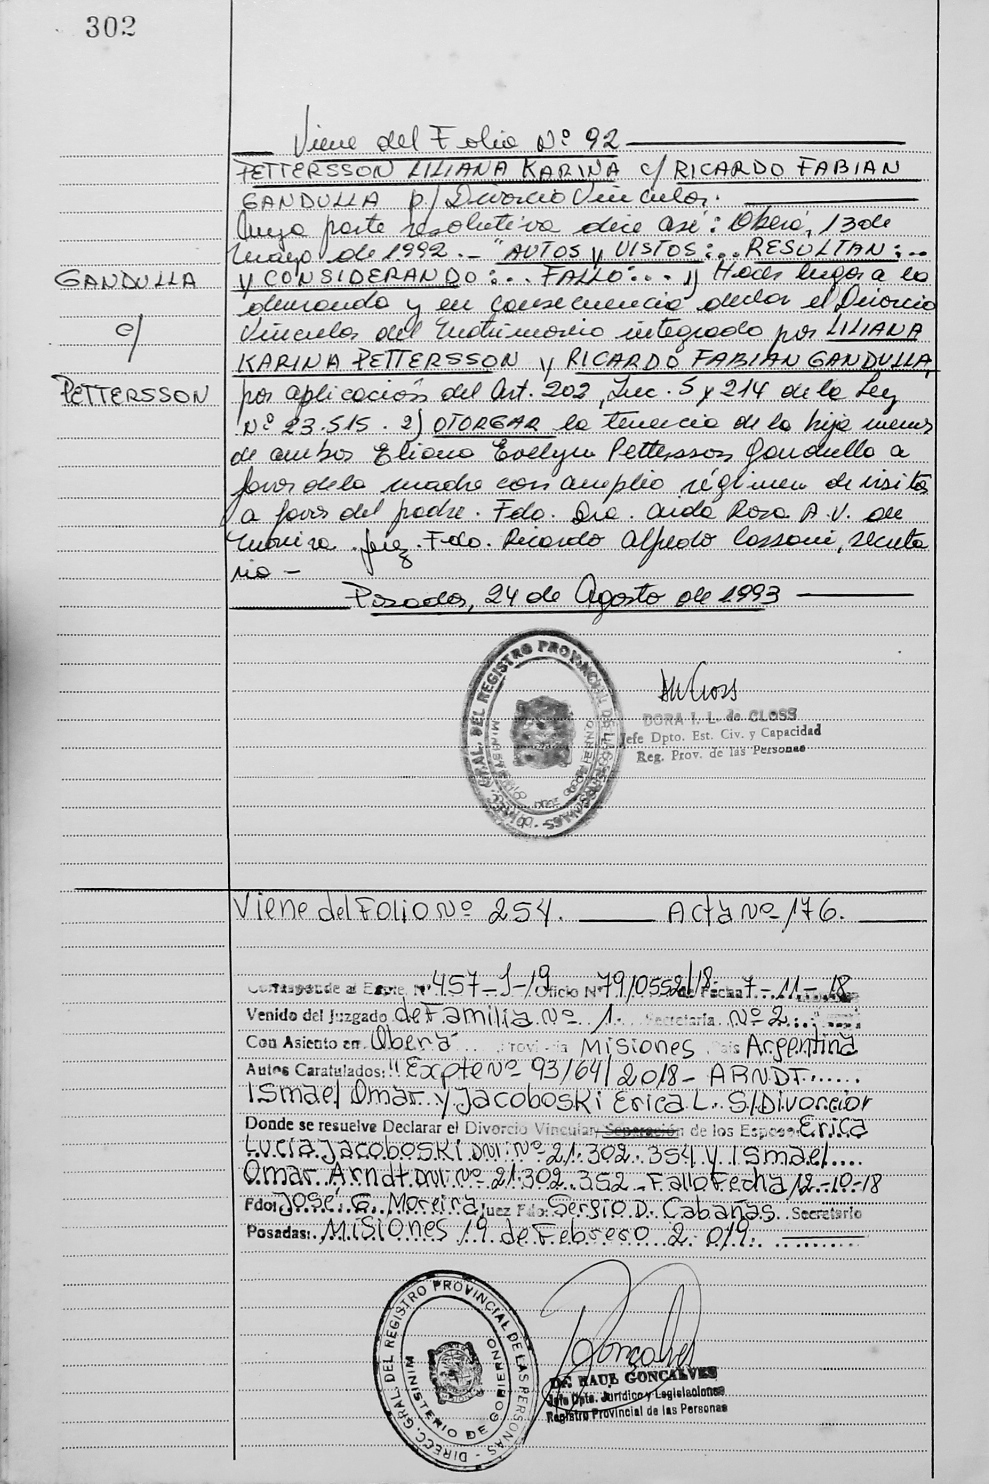 302
Viene del Folio Nº 92
PETTERSSON LILIANA KARINA c/ RICARDO FABIAN
GANDULLA p/ Divorcio Vincular.
Cuya parte resolutiva dice así: Oberá, 13 de
mayo de 1992.- "AUTOS y VISTOS:.. RESULTAN:..
y CONSIDERANDO:.. FALLO:.. 1) Hacer lugar a la
demanda y en consecuencia declar el Divorcio
Vincular del Matrimonio integrado por LILIANA
KARINA PETTERSSON y RICARDO FABIAN GANDULLA,
por aplicación del Art. 202, Inc. 5 y 214 de la Ley
Nº 23.515. 2) OTORGAR la tenencia de la hija menor
de ambos Eliana Evelyn Pettersson Gandulla a
favor de la madre con amplio régimen de visitas
a favor del padre. Fdo. Dra. Aida Rosa A.V. de
Juez. Fdo. Ricardo Alfredo Cassoni, secreta
rio -
Posadas, 24 de Agosto de 1993
GANDULLA
c/
PETTERSSON
DIREC. GRAL. DEL REGISTRO PROVINCIAL DE LAS PERSONAS
MINISTERIO DE GOBIERNO
DORA I. L. de CLOSS
Jefe Dpto. Est. Civ. y Capacidad
Reg. Prov. de las Personas
Viene del Folio Nº 254. Acta Nº 176.
Corresponde al Expte. Nº 457-J-19 Oficio Nº 79/0552/18 de Fecha 7-11-18
Venido del Juzgado de Familia Nº 1. Secretaría Nº 2
Con Asiento en Oberá Provincia Misiones País Argentina
Autos Caratulados: "Expte Nº 93164/2018- ARNDT
Ismael Omar y Jacoboski Erica L. S/Divorcio"
Donde se resuelve Declarar el Divorcio Vincular, Separación de los Esposos Erica
Lucia Jacoboski DNI: Nº 21.302.354 y Ismael
Omar Arndt DNI: Nº 21.302.352- Fallo Fecha 12-10-18
Fdo: José G. Moreira Juez Fdo: Sergio D. Cabañas Secretario
Posadas: Misiones 19 de Febrero 2.019.
DIRECC. GRAL. DEL REGISTRO PROVINCIAL DE LAS PERSONAS
MINISTERIO DE GOBIERNO
DR. RAUL GONCALVES
Jefe Dpto. Jurídico y Legislaciones
Registro Provincial de las Personas